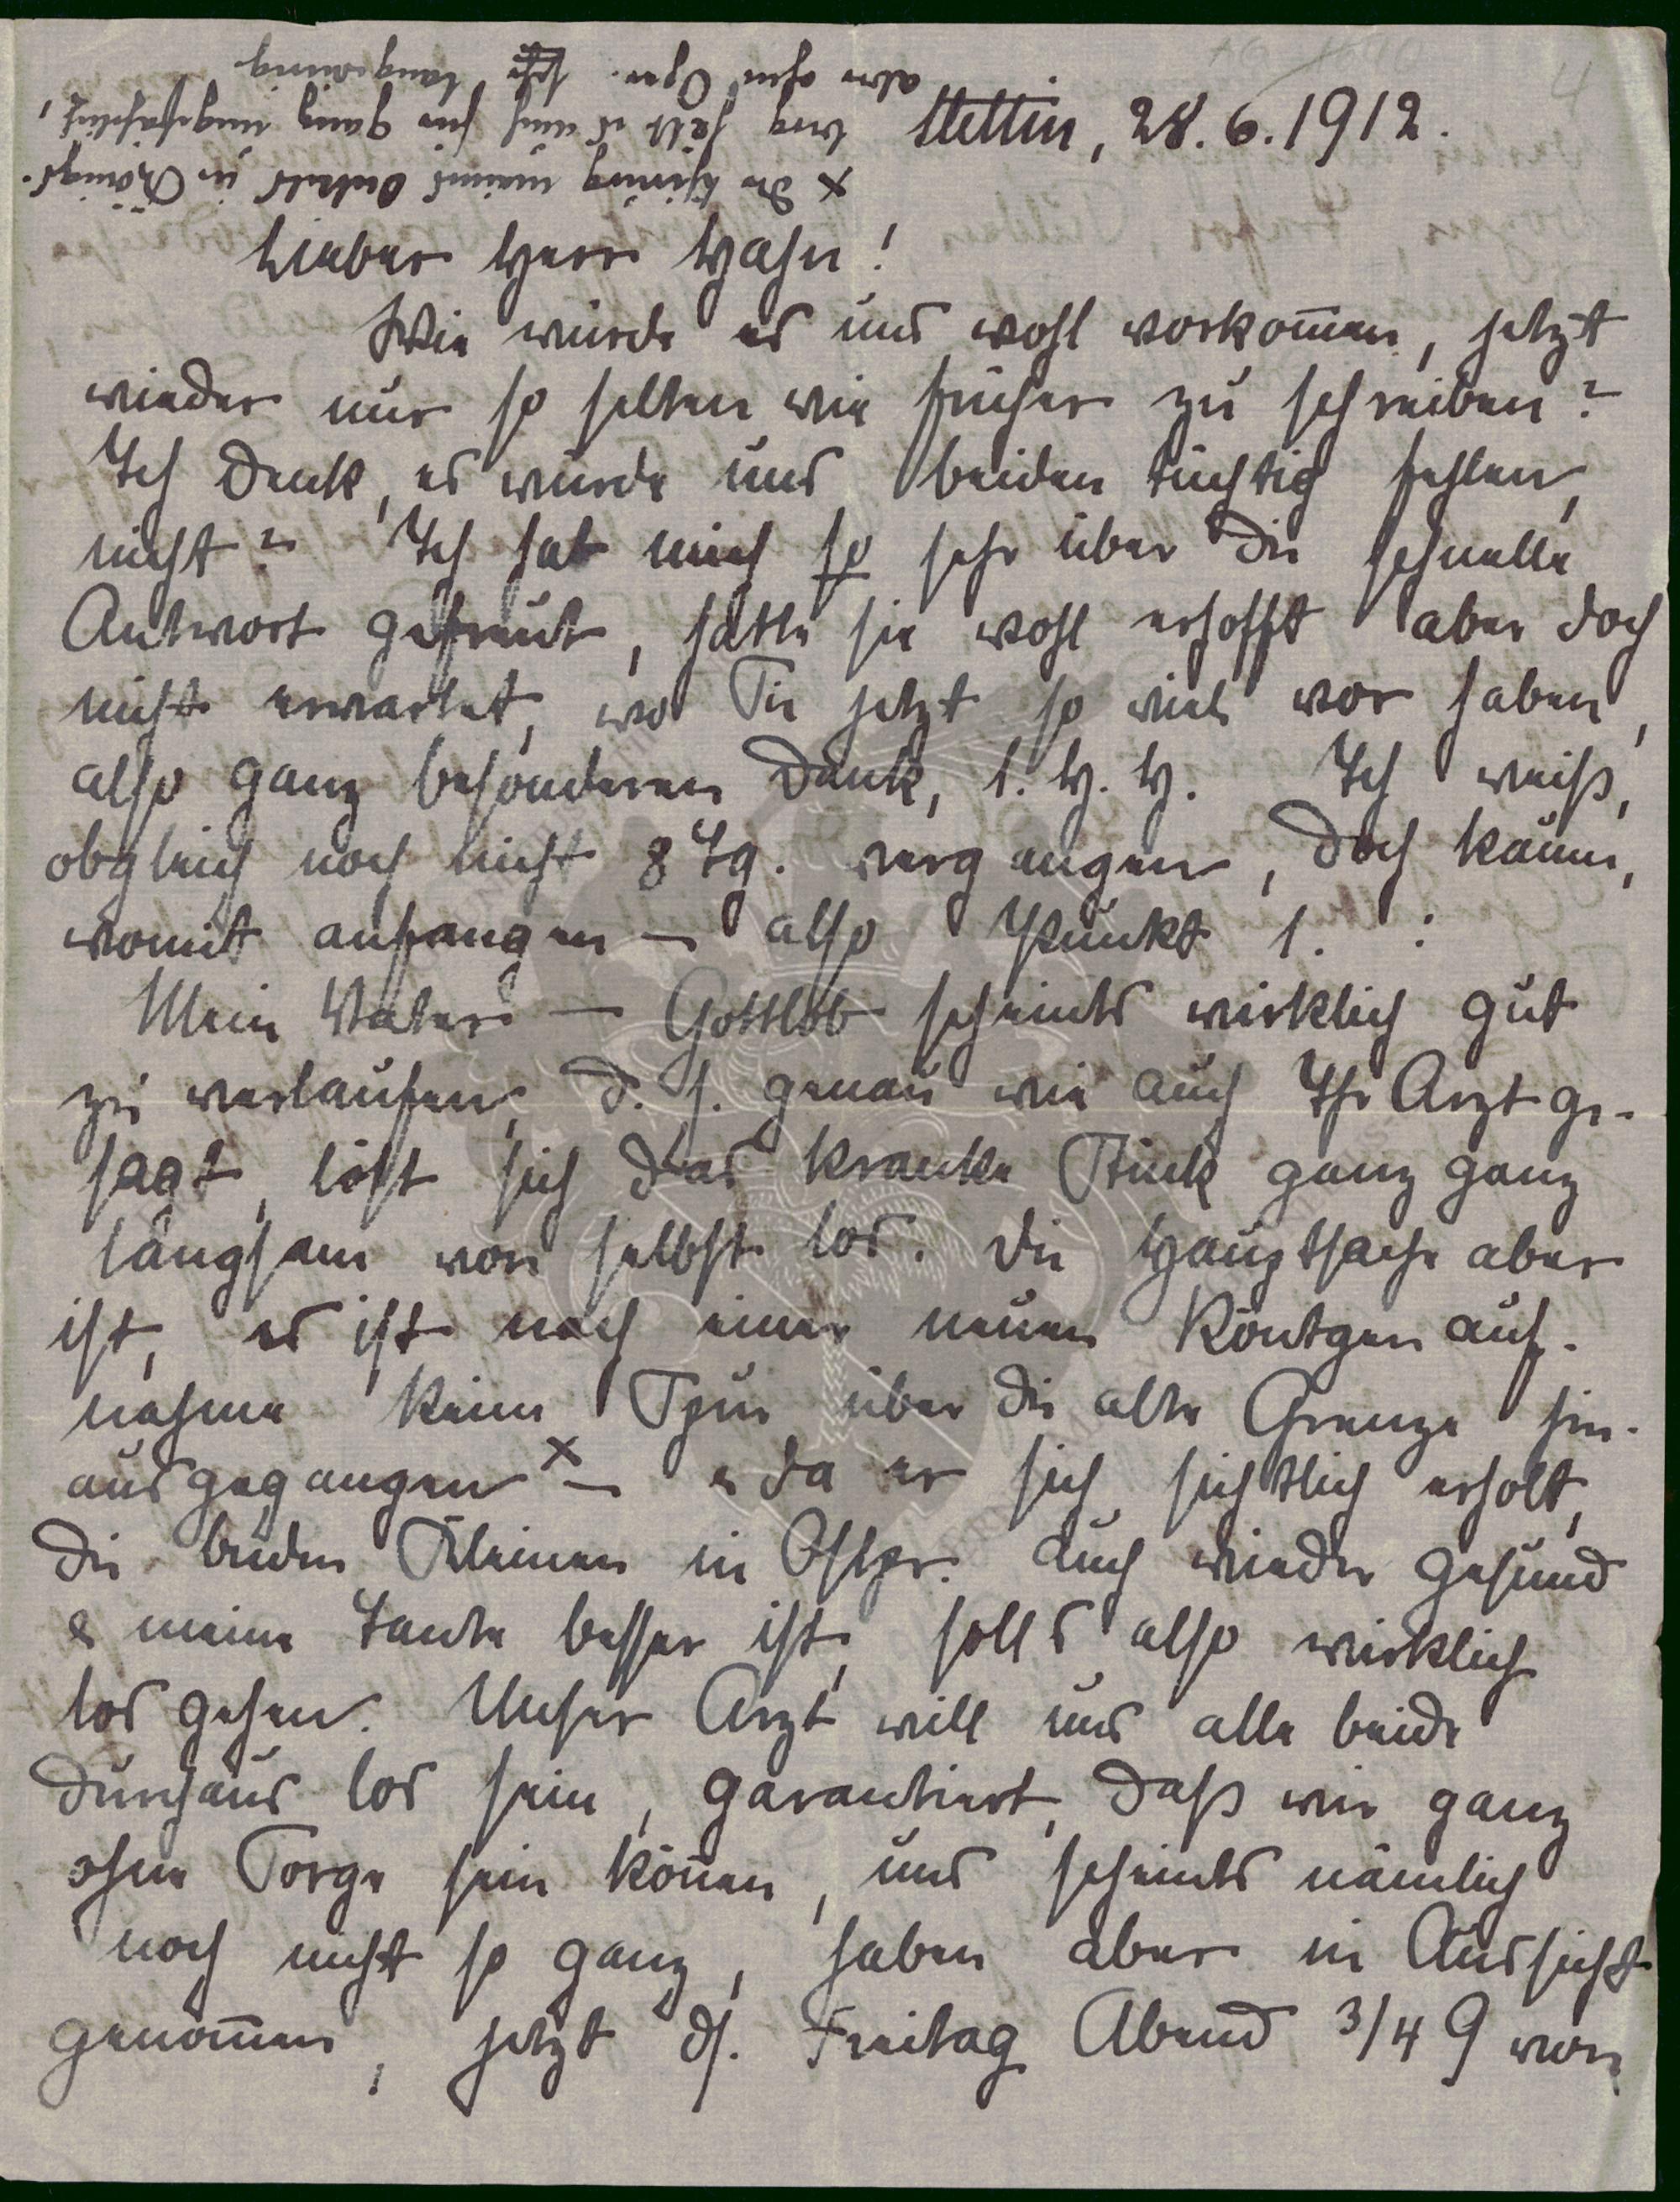 Stettin, 28.6.1912.
Lieber Herr Hahn!
Wie würde es uns wohl vorkom̄en, jetzt
wieder nur so selten wie früher zu schreiben?
Ich denk, es würde uns beiden tüchtig fehlen,
nicht? Ich hab mich so sehr über die schnelle
Antwort gefreut, hatte sie wohl erhofft aber doch
nicht erwartet, wo Sie jetzt so viel vor haben,
also ganz besonderen Dank, l. H. H. Ich weiß,
obgleich noch nicht 8 Tg. vergangen, doch kaum,
womit anfangen – also Punkt 1. :
Mein Vater – Gottlob scheints wirklich gut
zu verlaufen, d. h. genau wie auch Ihr Arzt ge-
sagt, löst sich das kranke Stück ganz ganz
langsam von selbst los. Die Hauptsache aber
ist, es ist nach einer neuen Röntgen auf-
nahme keine Spur über die alte Grenze hin-
ausgegangen x – & da er sich sichtlich erholt,
die beiden Kleinen in Ostpr. auch wieder gesund
& meine Tante besser ist, solls also wirklich
los gehen. Unser Arzt will uns alle beide
durchaus los sein, garantiert, daß wir ganz
ohne Sorge sein kön̄en, uns scheints nämlich
noch nicht so ganz, haben aber in Aussicht
genom̄en, jetzt d. h. Freitag Abend 3/4 9 von
x Der Chirurg meines Onkels in Königs-
berg hält es auch für ganz ungefährlich,
aber ohne Oper. sehr langwierig